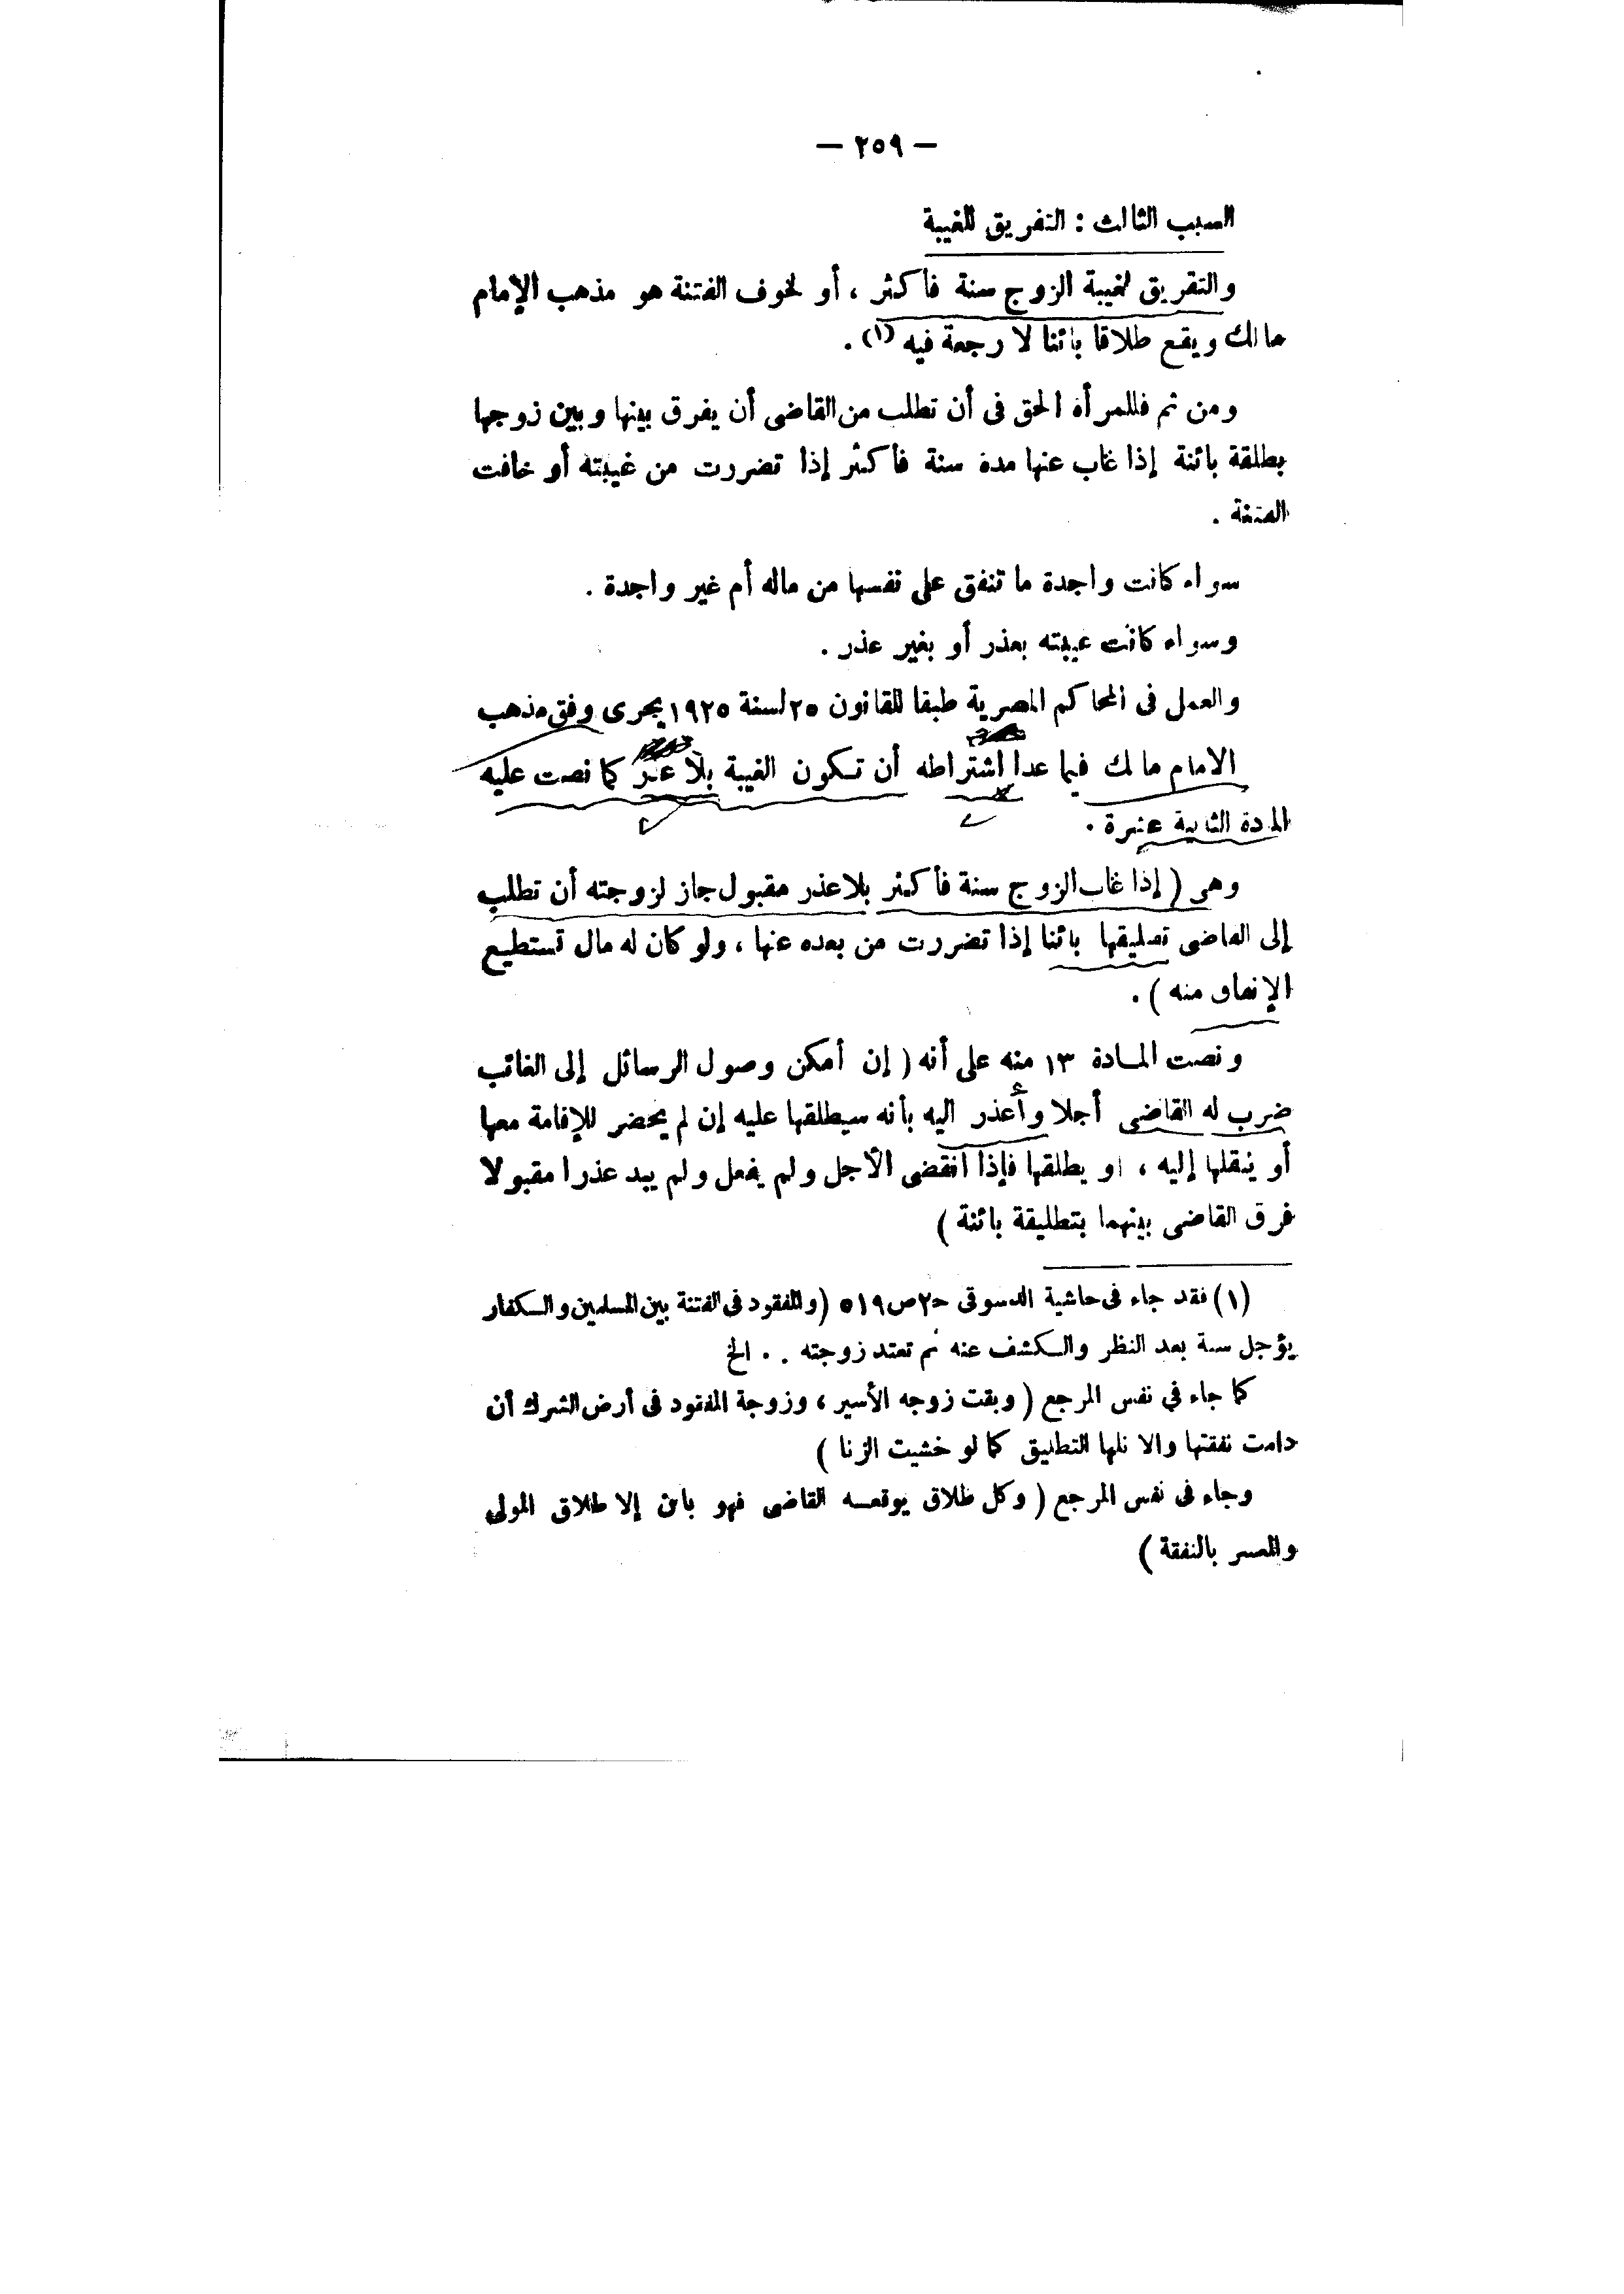 — ٢٥٩ —
السبب الثالث : التفريق للغيبة
والتفريق لغيبة الزوج سنة فأكثر ، أو لخوف الفتنة هو مذهب الإمام
مالك ويقع طلاقا بائنا لا رجعة فيه (١) .
ومن ثم فللمرأة الحق فى أن تطلب من القاضى أن يفرق بينها وبين زوجها
بطلقة بائنة إذا غاب عنها مدة سنة فأكثر إذا تضررت من غيبته أو خافت
الفتنة .
سواء كانت واجدة ما تنفق على نفسها من ماله أم غير واجدة .
وسواء كانت غيبته بعذر أو بغير عذر .
والعمل فى المحاكم المصرية طبقا للقانون ٢٥ لسنة ١٩٢٥ يجرى وفق مذهب
الامام مالك فيما عدا اشتراطه أن تكون الغيبة بلا عذر كما نصت عليه
المادة الثانية عشرة .
وهى ( إذا غاب الزوج سنة فأكثر بلا عذر مقبول جاز لزوجته أن تطلب
إلى القاضى تطليقها بائنا إذا تضررت من بعده عنها ، ولو كان له مال تستطيع
الإنفاق منه ) .
ونصت المادة ١٣ منه على أنه ( إن أمكن وصول الرسائل إلى الغائب
ضرب له القاضى أجلا وأعذر اليه بأنه سيطلقها عليه إن لم يحضر للإقامة معها
أو ينقلها إليه ، او يطلقها فإذا انقضى الأجل ولم يفعل ولم يبد عذرا مقبولا
فرق القاضى بينهما بتطليقة بائنة )
(١) فقد جاء فى حاشية الدسوقى ح٢ ص ٥١٩ ( والمفقود فى الفتنة بين المسلمين والكفار
يؤجل سنة بعد النظر والكشف عنه ثم تعتد زوجته . . الخ
كما جاء في نفس المرجع ( وبقت زوجه الأسير ، وزوجة المفقود فى أرض الشرك أن
دامت نفقتها والا فلها التطليق كما لو خشيت الزنا )
وجاء فى نفس المرجع ( وكل طلاق يوقعه القاضى فهو بائن إلا طلاق المولى
والمعسر بالنفقة )